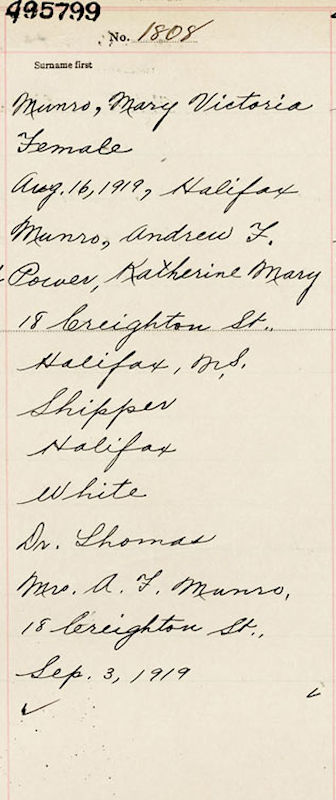 495799
No. 1808
Surname first
Munro, Mary Victoria
Female
Aug. 16, 1919, Halifax
Munro, Andrew F.
Power, Katherine Mary
18 Creighton St.,
Halifax, N.S.
Shipper
Halifax
White
Dr. Thomas
Mrs. A. F. Munro,
18 Creighton St.,
Sep. 3, 1919